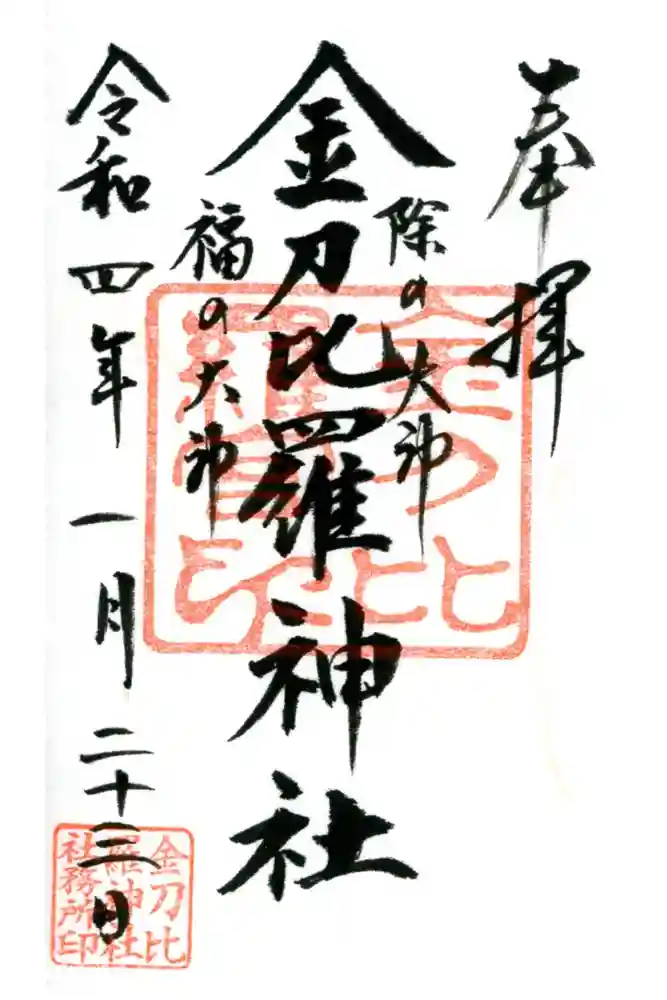 奉拝
除の大神
金刀比羅神社
福の大神
令和四年一月二十三日
金刀比
羅神社
社務所印